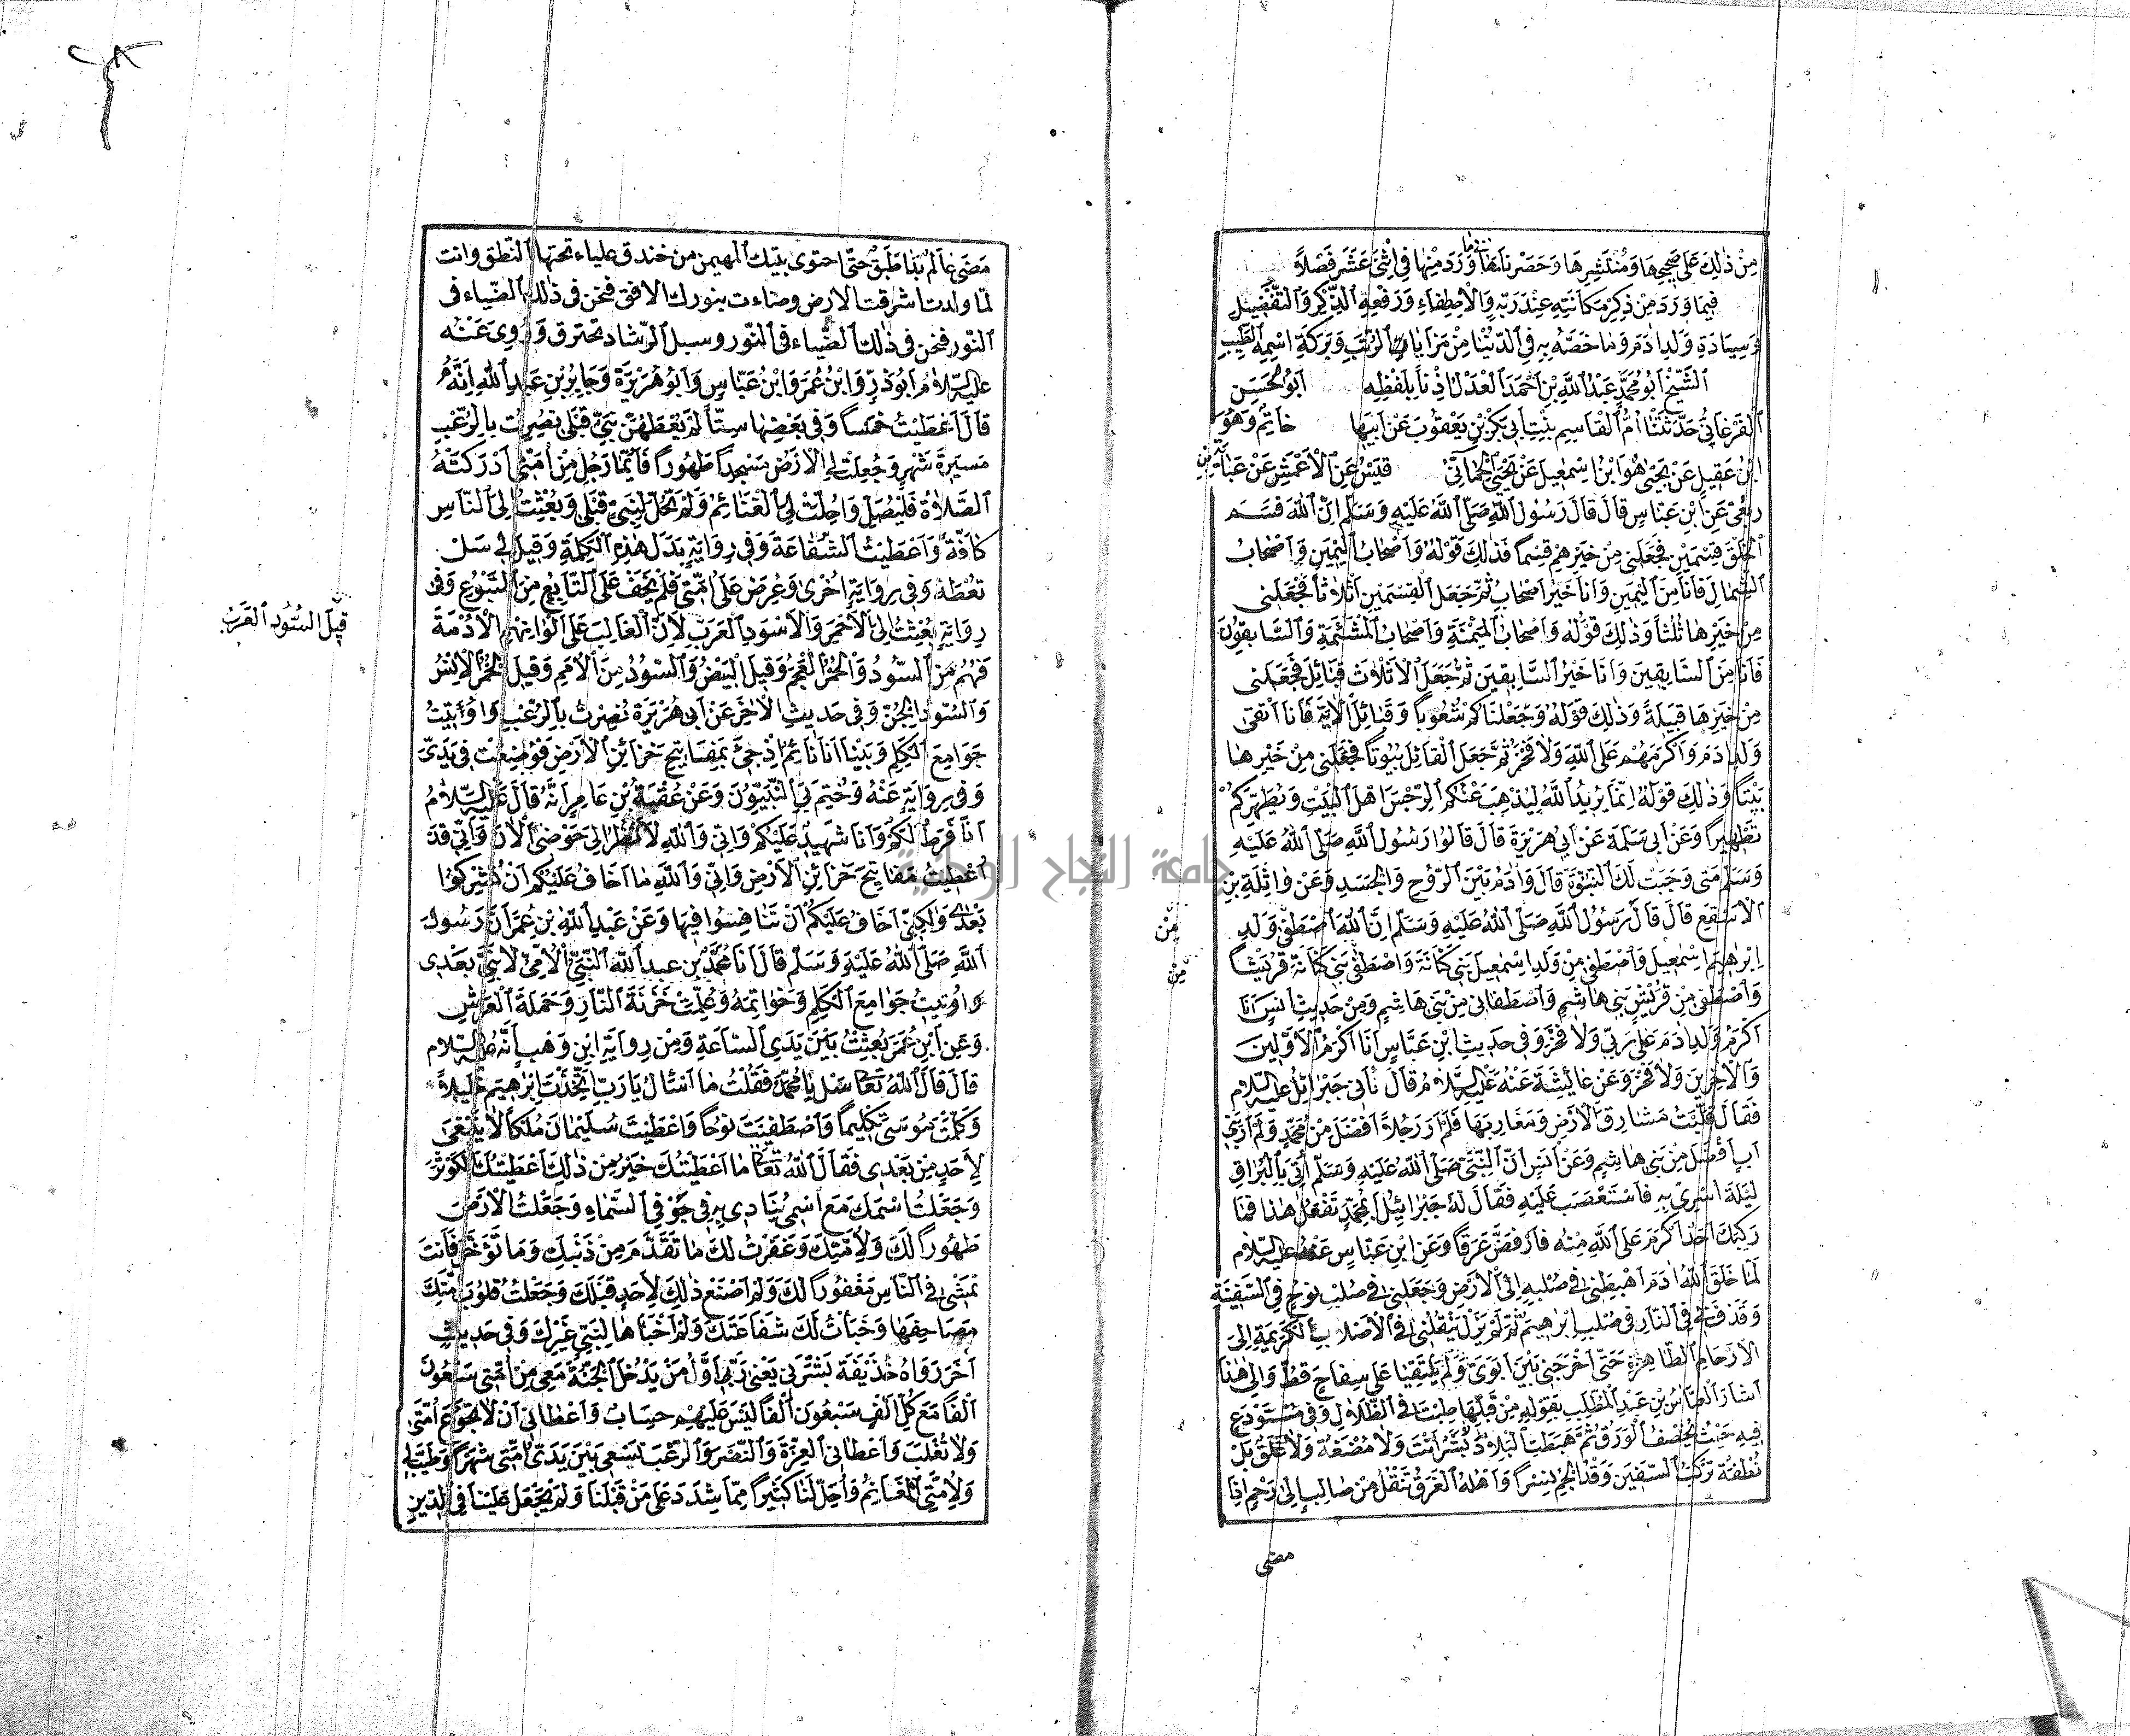 مِنْ ذٰلِكَ عَلٰى صَحِيحِهَا وَمُنْتَشِرِهَا وَحَصَرْنَا مَعَانِىَ مَا وَرَدَ مِنْهَا فِى اثْنَىْ عَشَرَ فَصْلاً
فِيمَا وَرَدَ مِنْ ذِكْرِ مَكَانَتِهِ عِنْدَ رَبِّهِ وَالْاِصْطِفَاءِ وَرِفْعَةِ الذِّكْرِ وَالتَّفْضِيلِ
وَسِيَادَةِ وَلَدِ اٰدَمَ وَمَا خَصَّهُ بِهِ فِى الدُّنْيَا مِنْ مَزَايَا الرُّتَبِ وَبَرَكَةِ اسْمِهِ الطَّيِّبِ
الشَّيْخُ اَبُو مُحَمَّدٍ عَبْدُ اللّٰهِ بْنُ اَحْمَدَ الْعَدْلُ اِذْناً بِلَفْظِهِ اَبُو الْحَسَنِ
الْفَرْغَانِىُّ حَدَّثَتْنَا اُمُّ الْقَاسِمِ بِنْتُ اَبِى بَكْرِ بْنِ يَعْقُوبَ عَنْ اَبِيهَا حَاتِمٌ وَهُوَ
ابْنُ عَقِيلٍ عَنْ يَحْيٰى هُوَ ابْنُ اِسْمٰعِيلَ عَنْ يَحْيَى الْحِمَّانِىِّ قَيْسٌ عَنِ الْاَعْمَشِ عَنْ عَبَايَةَ بْنِ
رِبْعِىٍّ عَنِ ابْنِ عَبَّاسٍ قَالَ قَالَ رَسُولُ اللّٰهِ صَلَّى اللّٰهُ عَلَيْهِ وَسَلَّمَ اِنَّ اللّٰهَ قَسَمَ
الْخَلْقَ قِسْمَيْنِ فَجَعَلَنِى مِنْ خَيْرِهِمْ قِسْماً فَذٰلِكَ قَوْلُهُ وَاَصْحَابُ الْيَمِينِ وَاَصْحَابُ
الشِّمَالِ فَاَنَا مِنَ الْيَمِينِ وَاَنَا خَيْرُ اَصْحَابِ ثُمَّ جَعَلَ الْقِسْمَيْنِ اَثْلَاثاً فَجَعَلَنِى
مِنْ خَيْرِهَا ثُلُثاً وَذٰلِكَ قَوْلُهُ وَاَصْحَابُ الْمَيْمَنَةِ وَاَصْحَابُ الْمَشْئَمَةِ وَالسَّابِقُونَ
فَاَنَا مِنَ السَّابِقِينَ وَاَنَا خَيْرُ السَّابِقِينَ ثُمَّ جَعَلَ الْاَثْلَاثَ قَبَائِلَ فَجَعَلَنِى
مِنْ خَيْرِهَا قَبِيلَةً وَذٰلِكَ قَوْلُهُ وَجَعَلْنَاكُمْ شُعُوباً وَقَبَائِلَ الْاٰيَةَ فَاَنَا اَتْقٰى
وَلَدِ اٰدَمَ وَاَكْرَمُهُمْ عَلَى اللّٰهِ وَلَا فَخْرَ ثُمَّ جَعَلَ الْقَبَائِلَ بُيُوتاً فَجَعَلَنِى مِنْ خَيْرِهَا
بَيْتاً وَذٰلِكَ قَوْلُهُ اِنَّمَا يُرِيدُ اللّٰهُ لِيُذْهِبَ عَنْكُمُ الرِّجْسَ اَهْلَ الْبَيْتِ وَيُطَهِّرَكُمْ
تَطْهِيراً وَعَنْ اَبِى سَلَمَةَ عَنْ اَبِى هُرَيْرَةَ قَالَ قَالُوا رَسُولَ اللّٰهِ صَلَّى اللّٰهُ عَلَيْهِ
وَسَلَّمَ مَتٰى وَجَبَتْ لَكَ النُّبُوَّةُ قَالَ وَاٰدَمُ بَيْنَ الرُّوحِ وَالْجَسَدِ وَعَنْ وَاثِلَةَ بْنِ
الْاَسْقَعِ قَالَ قَالَ رَسُولُ اللّٰهِ صَلَّى اللّٰهُ عَلَيْهِ وَسَلَّمَ اِنَّ اللّٰهَ اصْطَفٰى وَلَدِ
مِنْ
اِبْرٰهِيمَ اِسْمٰعِيلَ وَاصْطَفٰى مِنْ وَلَدِ اِسْمٰعِيلَ بَنِى كِنَانَةَ وَاصْطَفٰى بَنِى كِنَانَةَ قُرَيْشاً
مِنْ
وَاصْطَفٰى مِنْ قُرَيْشٍ بَنِى هَاشِمٍ وَاصْطَفَانِى مِنْ بَنِى هَاشِمٍ وَمِنْ حَدِيثِ اَنَسٍ اَنَا
اَكْرَمُ وَلَدِ اٰدَمَ عَلٰى رَبِّى وَلَا فَخْرَ وَفِى حَدِيثِ ابْنِ عَبَّاسٍ اَنَا اَكْرَمُ الْاَوَّلِينَ
وَالْاٰخِرِينَ وَلَا فَخْرَ وَعَنْ عَائِشَةَ عَنْهُ عَلَيْهِ السَّلَامُ قَالَ اَتَانِى جَبْرَائِلُ عَلَيْهِ السَّلَام
فَقَالَ قَلَّبْتُ مَشَارِقَ الْاَرْضِ وَمَغَارِبَهَا فَلَمْ اَرَ رَجُلاً اَفْضَلَ مِنْ مُحَمَّدٍ وَلَمْ اَرَ بَنِى
اَبٍ اَفْضَلَ مِنْ بَنِى هَاشِمٍ وَعَنْ اَنَسٍ اَنَّ النَّبِىَّ صَلَّى اللّٰهُ عَلَيْهِ وَسَلَّمَ اُتِىَ بِالْبُرَاقِ
لَيْلَةَ اُسْرِىَ بِهِ فَاسْتَصْعَبَ عَلَيْهِ فَقَالَ لَهُ جَبْرَائِيلُ اَبِمُحَمَّدٍ تَفْعَلُ هٰذَا فَمَا
رَكِبَكَ اَحَدٌ اَكْرَمُ عَلَى اللّٰهِ مِنْهُ فَارْفَضَّ عَرَقاً وَعَنِ ابْنِ عَبَّاسٍ عَنْهُ عَلَيْهِ السَّلَام
لَمَّا خَلَقَ اللّٰهُ اٰدَمَ اَهْبَطَنِى فِى صُلْبِهِ اِلَى الْاَرْضِ وَجَعَلَنِى فِى صُلْبِ نُوحٍ فِى السَّفِينَةِ
وَقَذَفَ بِى فِى النَّارِ فِى صُلْبِ اِبْرٰهِيمَ ثُمَّ لَمْ يَزَلْ يَنْقُلُنِى فِى الْاَصْلَابِ الْكَرِيمَةِ اِلَى
الْاَرْحَامِ الطَّاهِرَةِ حَتّٰى اَخْرَجَنِى بَيْنَ اَبَوَىَّ وَلَمْ يَلْتَقِيَا عَلٰى سِفَاحٍ قَطُّ وَاِلٰى هٰذَا
اَشَارَ الْعَبَّاسُ بْنُ عَبْدِ الْمُطَّلِبِ بِقَوْلِهِ مِنْ قَبْلِهَا طِبْتَ فِى الظِّلَالِ وَفِى مُسْتَوْدَعٍ
فِيهِ حَيْثُ يُخْصَفُ الْوَرَقُ ثُمَّ هَبَطْتَ الْبِلَادَ لَا بَشَرٌ اَنْتَ وَلَا مُضْغَةٌ وَلَا عَلَقُ بَلْ
نُطْفَةٌ تَرْكَبُ السَّفِينَ وَقَدْ اَلْجَمَ نَسْراً وَاَهْلَهُ الْغَرَقُ تُنْقَلُ مِنْ صَالِبٍ اِلٰى رَحِمٍ اِذَا
مضى
مَضٰى عَالَمٌ بَدَا طَبَقٌ حتّى احتوى بيتك المهيمن من خندق علياء تحتها النّطق وانت
لمّا ولدت اشرقت الارض وضاءت بنورك الافق فنحن فى ذلك الضّياء فى
النّور فنحن فى ذلك الضّياء فى النّور وسبل الرّشاد تخترق وَرَوٰى عَنْهُ
عليه السّلام اَبُو ذَرٍّ وَابْنُ عُمَرَ وَابْنُ عَبَّاسٍ وَاَبُو هُرَيْرَةَ وَجَابِرُ بْنُ عَبْدِ اللّٰهِ اَنَّهُ
قَالَ اُعْطِيتُ خَمْساً وَفِى بَعْضِهَا سِتّاً لَمْ يُعْطَهُنَّ نَبِىٌّ قَبْلِى نُصِرْتُ بِالرُّعْبِ
مَسِيرَةَ شَهْرٍ وَجُعِلَتْ لِىَ الْاَرْضُ مَسْجِداً طَهُوراً فَاَيُّمَا رَجُلٍ مِنْ اُمَّتِى اَدْرَكَتْهُ
الصَّلٰوةُ فَلْيُصَلِّ وَاُحِلَّتْ لِىَ الْغَنَائِمُ وَلَمْ تَحِلَّ لِنَبِىٍّ قَبْلِى وَبُعِثْتُ اِلَى النَّاسِ
كَافَّةً وَاُعْطِيتُ الشَّفَاعَةَ وَفِى رِوَايَةٍ بَدَلَ هٰذِهِ الْكَلِمَةِ وَقِيلَ لِى سَلْ
تُعْطَهْ وَفِى رِوَايَةٍ اُخْرٰى وَعُرِضَ عَلَىَّ اُمَّتِى فَلَمْ يَخْفَ عَلَىَّ التَّابِعُ مِنَ الْمَتْبُوعِ وَفِى
رِوَايَةٍ بُعِثْتُ اِلَى الْاَحْمَرِ وَالْاَسْوَدِ الْعَرَبُ لِاَنَّ الْغَالِبَ عَلٰى اَلْوَانِهِمُ الْاُدْمَةُ
قِيلَ السُّودُ الْعَرَبُ
فَهُمْ مِنَ السُّودِ وَالْحُمْرُ الْعَجَمُ وَقِيلَ الْبِيضُ وَالسُّودُ مِنَ الْاُمَمِ وَقِيلَ الْحُمْرُ الْاِنْسُ
وَالسُّودُ الْجِنُّ وَفِى حَدِيثِ الْاٰخَرِ عَنْ اَبِى هُرَيْرَةَ نُصِرْتُ بِالرُّعْبِ وَاُوتِيتُ
جَوَامِعَ الْكَلِمِ وَبَيْنَا اَنَا نَائِمٌ اِذْ جِئَ بِمَفَاتِيحِ خَزَائِنِ الْاَرْضِ فَوُضِعَتْ فِى يَدَىَّ
وَفِى رِوَايَةٍ عَنْهُ وَخُتِمَ بِىَ النَّبِيُّونَ وَعَنْ عُقْبَةَ بْنِ عَامِرٍ اَنَّهُ قَالَ عَلَيْهِ السَّلَامُ
اَنَا فَرَطٌ لَكُمْ وَاَنَا شَهِيدٌ عَلَيْكُمْ وَاِنِّى وَاللّٰهِ لَاَنْظُرُ اِلٰى حَوْضِى الْاٰنَ وَاِنِّى قَدْ
اُعْطِيتُ مَفَاتِيحَ خَزَائِنِ الْاَرْضِ وَاِنِّى وَاللّٰهِ مَا اَخَافُ عَلَيْكُمْ اَنْ تُشْرِكُوا
بَعْدِى وَلٰكِنِّى اَخَافُ عَلَيْكُمْ اَنْ تَنَافَسُوا فِيهَا وَعَنْ عَبْدِ اللّٰهِ بْنِ عُمَرَ اَنَّ رَسُولَ
اللّٰهِ صَلَّى اللّٰهُ عَلَيْهِ وَسَلَّمَ قَالَ اَنَا مُحَمَّدُ بْنُ عبد اللّٰه النَّبِىُّ الْاُمِّىُّ لَا نَبِىَّ بَعْدِى
وَاُوتِيتُ جَوَامِعَ الْكَلِمِ وَخَوَاتِمَهُ وَعُلِّمْتُ خَزَنَةَ النَّارِ وَحَمَلَةَ الْعَرْشِ
وَعَنِ ابْنِ عُمَرَ بُعِثْتُ بَيْنَ يَدَىِ السَّاعَةِ وَمِنْ رِوَايَةِ ابْنِ وَهْبٍ اَنَّهُ عليه السّلام
قَالَ قَالَ اللّٰهُ تَعَا سَلْ يَا مُحَمَّدُ فَقُلْتُ مَا اَسْئَالُ يَا رَبِّ اتَّخَذْتَ اِبْرٰهِيمَ خَلِيلاً
وَكَلَّمْتَ مُوسٰى تَكْلِيماً وَاصْطَفَيْتَ نُوحاً وَاَعْطَيْتَ سُلَيْمَانَ مُلْكاً لَا يَنْبَغِى
لِاَحَدٍ مِنْ بَعْدِى فَقَالَ اللّٰهُ تَعَا مَا اَعْطَيْتُكَ خَيْرٌ مِنْ ذٰلِكَ اَعْطَيْتُكَ الْكَوْثَرَ
وَجَعَلْتُ اسْمَكَ مَعَ اسْمِى يُنَادٰى بِهِ فِى جَوْفِ السَّمَاءِ وَجَعَلْتُ الْاَرْضَ
طَهُوراً لَكَ وَلِاُمَّتِكَ وَغَفَرْتُ لَكَ مَا تَقَدَّمَ مِنْ ذَنْبِكَ وَمَا تَؤَخَّرَ فَاَنْتَ
تَمْشِى فِى النَّاسِ مَغْفُوراً لَكَ وَلَمْ اَصْنَعْ ذٰلِكَ لِاَحَدٍ قَبْلَكَ وَجَعَلْتُ قُلُوبَ اُمَّتِكَ
مَصَاحِفَهَا وَخَبَأْتُ لَكَ شَفَاعَتَكَ وَلَمْ اَخْبَأْهَا لِنَبِىٍّ غَيْرِكَ وَفِى حَدِيثٍ
اٰخَرَ رَوَاهُ حُذَيْفَةُ بَشَّرَنِى يَعْنِى رَبَّهُ اَوَّلُ مَنْ يَدْخُلُ الْجَنَّةَ مَعِى مِنْ اُمَّتِى سَبْعُونَ
اَلْفاً مَعَ كُلِّ اَلْفٍ سَبْعُونَ اَلْفاً لَيْسَ عَلَيْهِمْ حِسَابٌ وَاَعْطَانِى اَنْ لَا تَجُوعَ اُمَّتِى
وَلَا تُغْلَبَ وَاَعْطَانِى الْعِزَّةَ وَالنَّصْرَ وَالرُّعْبَ يَسْعٰى بَيْنَ يَدَىْ اُمَّتِى شَهْراً وَطَيَّبَ لِى
وَلِاُمَّتِى الْمَغَانِمَ وَاَحَلَّ لَنَا كَثِيراً مِمَّا شَدَّدَ عَلٰى مَنْ قَبْلَنَا وَلَمْ يَجْعَلْ عَلَيْنَا فِى الدِّينِ
جامعة النجاح الوطنية